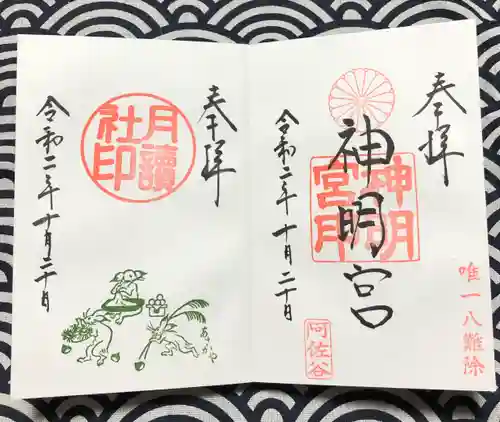 奉拝
神明宮
神明宮司
令和二年十月二十日
唯一八難除
阿佐谷
奉拝
月讀社印
令和二年十月二十日
あさがや